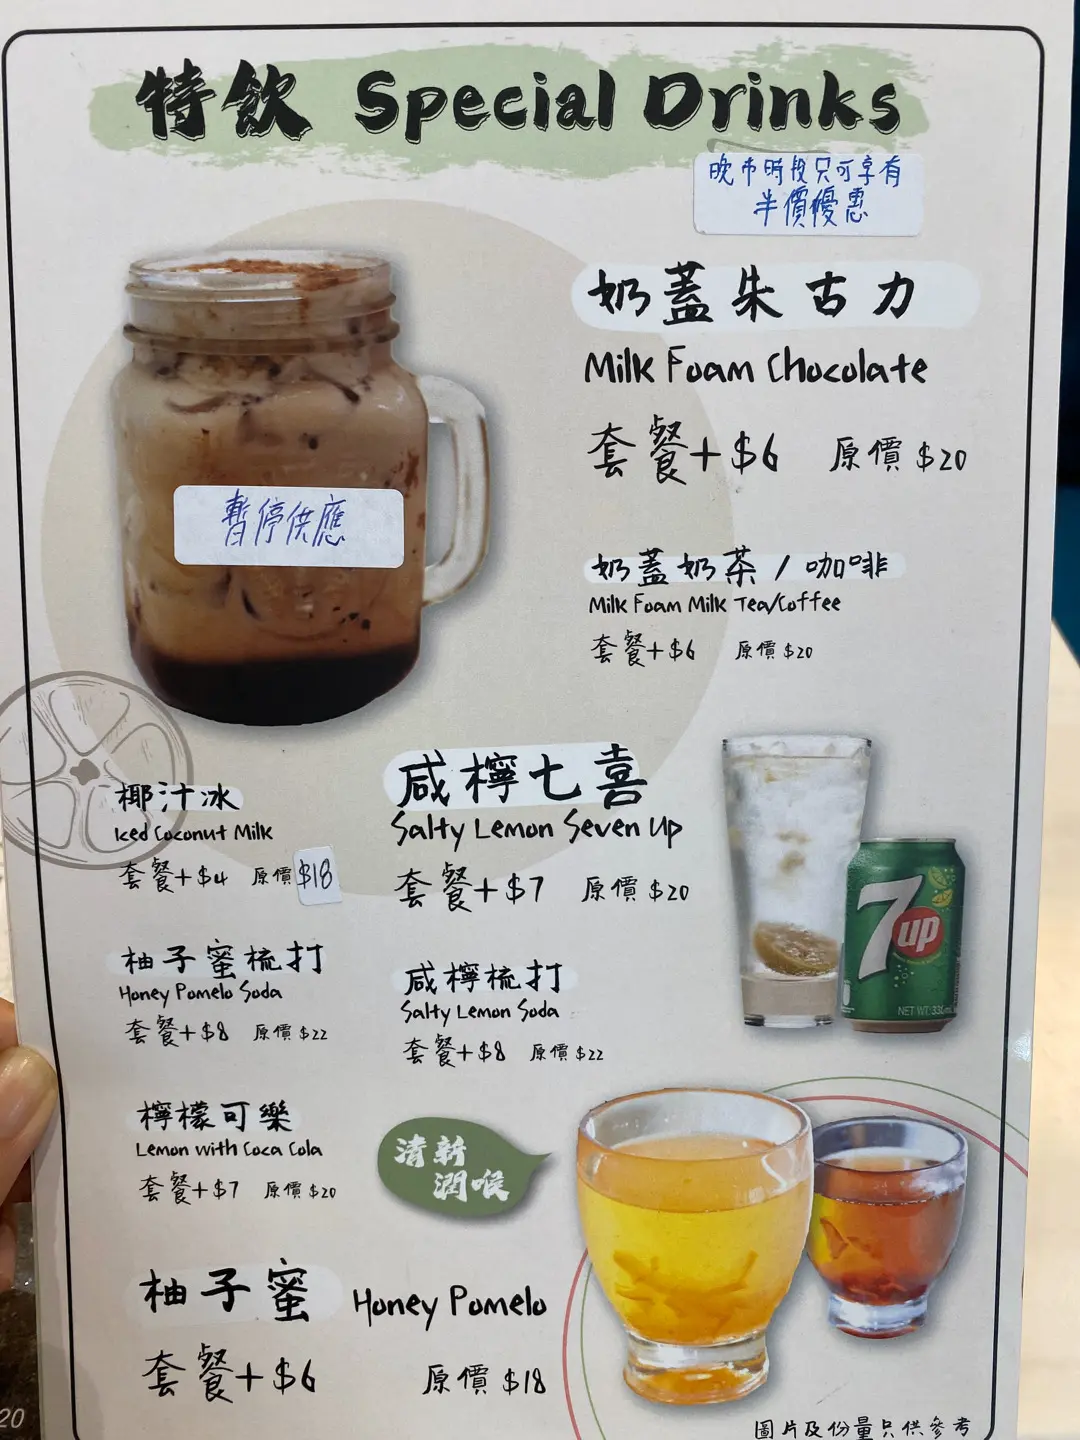 特飲 Special Drinks
晚市時段只可享有
半價優惠
奶蓋朱古力
Milk Foam Chocolate
套餐+$6 原價$20
暫停供應
奶蓋奶茶/咖啡
Milk Foam Milk Tea/Coffee
套餐+$6 原價$20
椰汁冰
Iced Coconut Milk
套餐+$4 原價$18
咸檸七喜
Salty Lemon Seven Up
套餐+$7 原價$20
7up
NET WT. 330mL
柚子蜜梳打
Honey Pomelo Soda
套餐+$8 原價$22
咸檸梳打
Salty Lemon Soda
套餐+$8 原價$22
檸檬可樂
Lemon with Coca Cola
套餐+$7 原價$20
清新
潤喉
柚子蜜 Honey Pomelo
套餐+$6 原價$18
20
圖片及份量只供參考